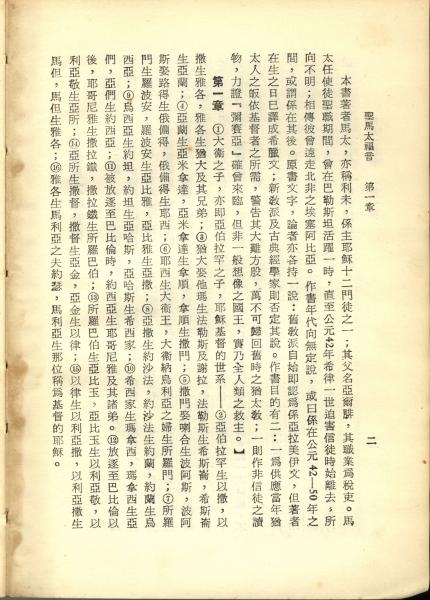 聖馬太福音　第一章
二
本書著者馬太，亦稱利未，係主耶穌十二門徒之一；其父名亞爾腓，其職業爲稅吏。馬
太任使徒聖職期間，曾在巴勒斯坦活躍一時，直至公元42年希律一世迫害信徒時始離去，所
向不明；相傳彼曾遠走北非之埃塞阿比亞。作書年代向無定說，或曰係在公元42—50年之
間，或謂係在其後。原書文字，論者亦各持一說：舊敎派自始即認爲係亞拉美伊文，但著者
在生之日已譯成希臘文；新敎派及古典經學家則否定其說。作書目的有二：一爲供應當年猶
太人之皈依基督者之所需，警告其大難方殷，萬不可歸回舊時之猶太敎；一則作非信徒之讀
物，力證『彌賽亞』確曾來臨，但非一般想像之國王，實乃全人類之救主。】
第一章　①大衞之子，亦即亞伯拉罕之子，耶穌基督的世系——②亞伯拉罕生以撒，以
撒生雅各，雅各生猶大及其兄弟；③猶大娶他瑪生法勒斯及謝拉，法勒斯生希斯崙，希斯崙
生亞蘭；④亞蘭生亞米拿達，亞米拿達生拿順，拿順生撒門；⑤撒門娶喇合生波阿斯，波阿
斯娶路得生俄備得，俄備得生耶西；⑥耶西生大衞王，大衞納烏利亞之婦生所羅門；⑦所羅
門生羅波安，羅波安生亞比雅，亞比雅生亞撒；⑧亞撒生約沙法，約沙法生約蘭，約蘭生烏
西亞；⑨烏西亞生約坦，約坦生亞哈斯，亞哈斯生希西家；⑩希西家生瑪拿西，瑪拿西生亞
們，亞們生約西亞；⑪被放逐至巴比倫時，約西亞生耶哥尼雅及其諸弟。⑫放逐至巴比倫以
後，耶哥尼雅生撒拉鐵，撒拉鐵生所羅巴伯；⑬所羅巴伯生亞比玉，亞比玉生以利亞敬，以
利亞敬生亞所；⑭亞所生撒督，撒督生亞金，亞金生以律；⑮以律生以利亞撒，以利亞撒生
馬但，馬但生雅各；⑯雅各生馬利亞之夫約瑟，馬利亞生那位稱爲基督的耶穌。